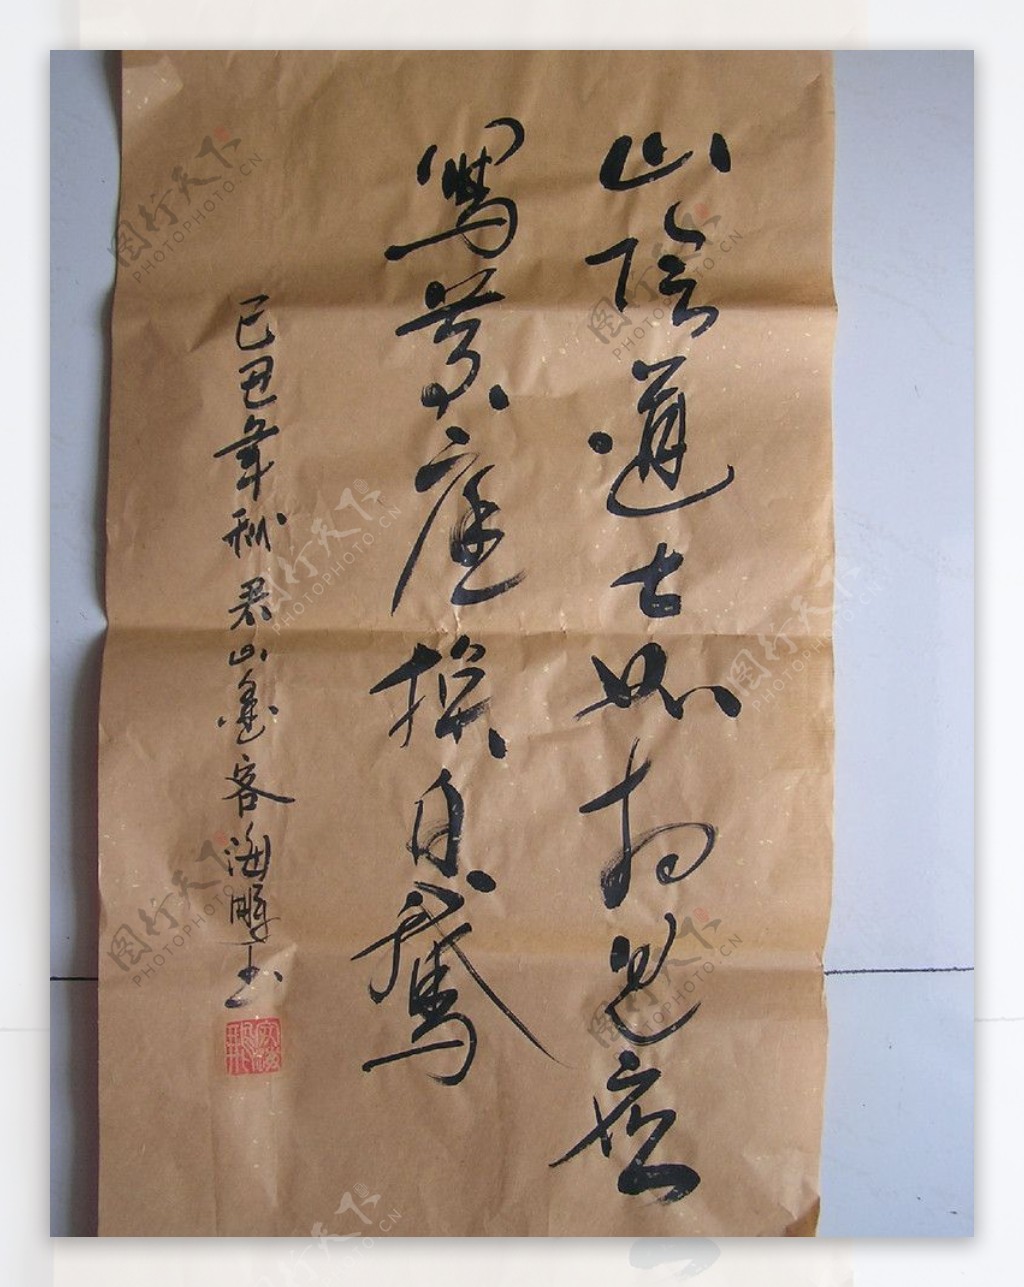 山陰道士如相見應
寫黃庭換白鵝
己丑年秋 君山墨客海鵬书
图行天下
PHOTOPHOTO.CN
图行天下
PHOTOPHOTO.CN
图行天下
PHOTOPHOTO.CN
图行天下
PHOTOPHOTO.CN
图行天下
PHOTOPHOTO.CN
图行天下
PHOTOPHOTO.CN
图行天下
PHOTOPHOTO.CN